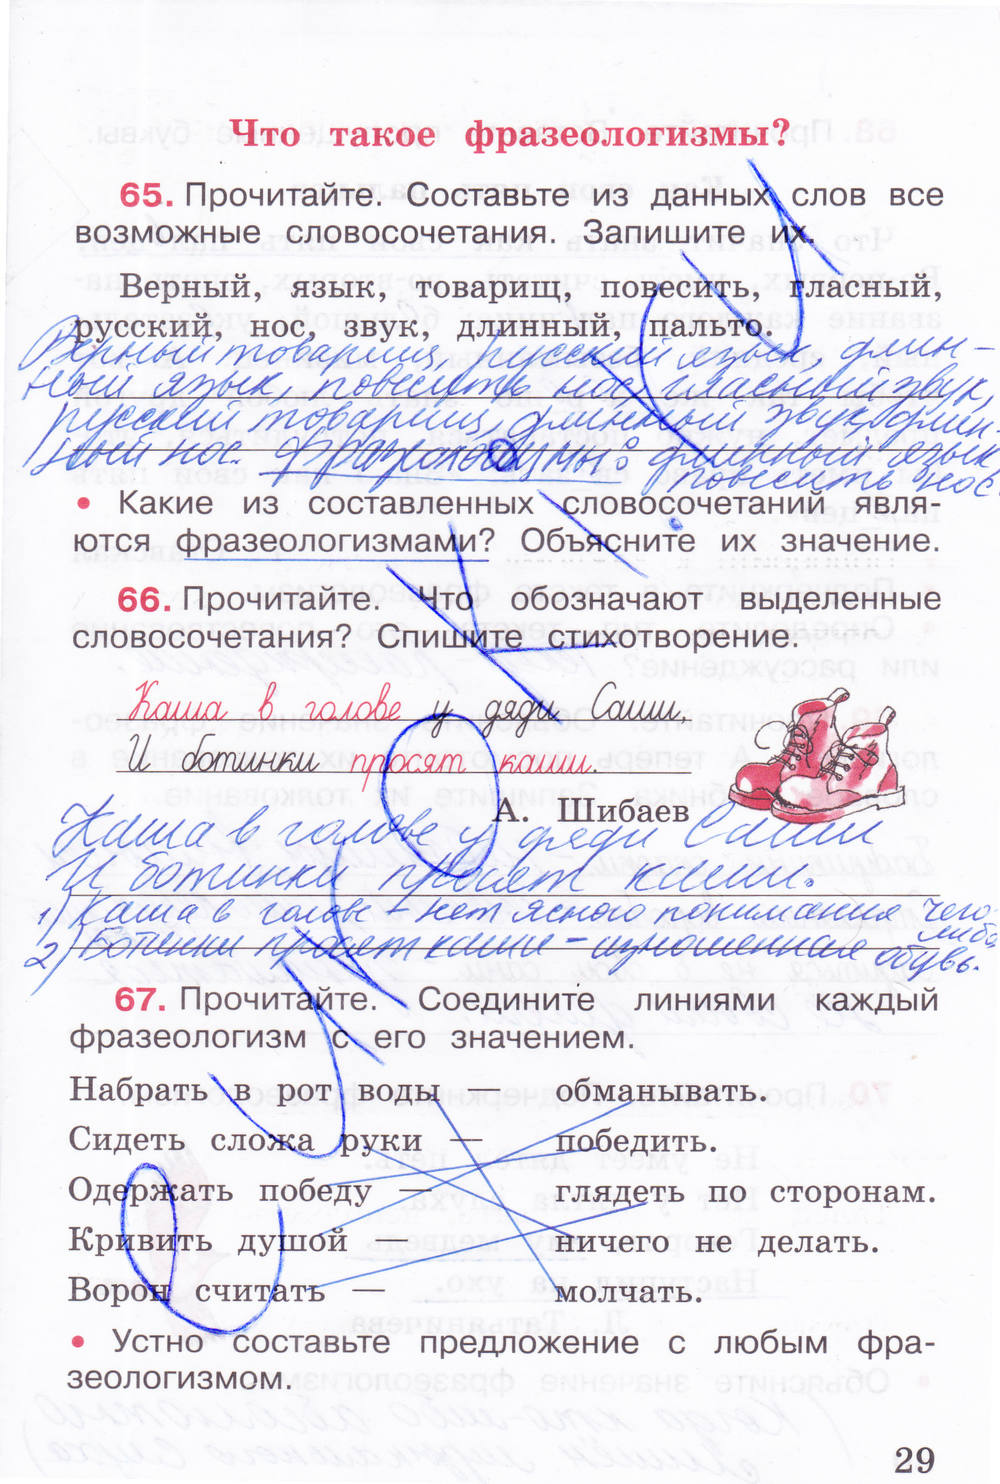 Что такое фразеологизмы?
65. Прочитайте. Составьте из данных слов все
возможные словосочетания. Запишите их.
Верный, язык, товарищ, повесить, гласный,
русский, нос, звук, длинный, пальто.
Верный товарищ, русский язык, длин-
ный язык, повесить нос, гласный звук,
русский товарищ, длинный звук, длин-
ный нос. длинный язык,
повесить нос.
• Какие из составленных словосочетаний явля-
ются фразеологизмами? Объясните их значение.
66. Прочитайте. Что обозначают выделенные
словосочетания? Спишите стихотворение.
Каша в голове у дяди Саши,
И ботинки просят каши.
А. Шибаев
Каша в голове у дяди Саши
И ботинки просят каши.
1) Каша в голове – нет ясного понимания чего-
либо
2) Ботинки просят каши – изношенная обувь.
67. Прочитайте. Соедините линиями каждый
фразеологизм с его значением.
Набрать в рот воды — обманывать.
Сидеть сложа руки — победить.
Одержать победу — глядеть по сторонам.
Кривить душой — ничего не делать.
Ворон считать — молчать.
• Устно составьте предложение с любым фра-
зеологизмом.
29